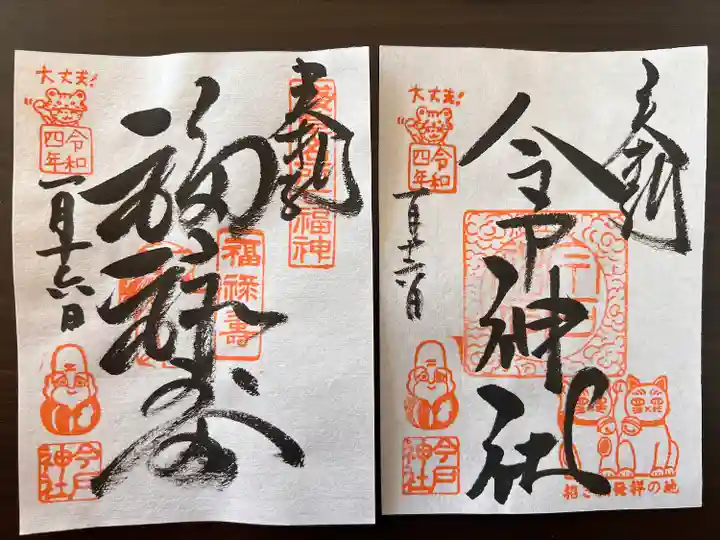 奉拝
福禄寿
福禄寿
大丈夫!
令和
四年
一月十六日
今戸
神社
奉拝
今戸神社
大丈夫!
令和
四年
一月十六日
今戸
神社
招き猫発祥の地